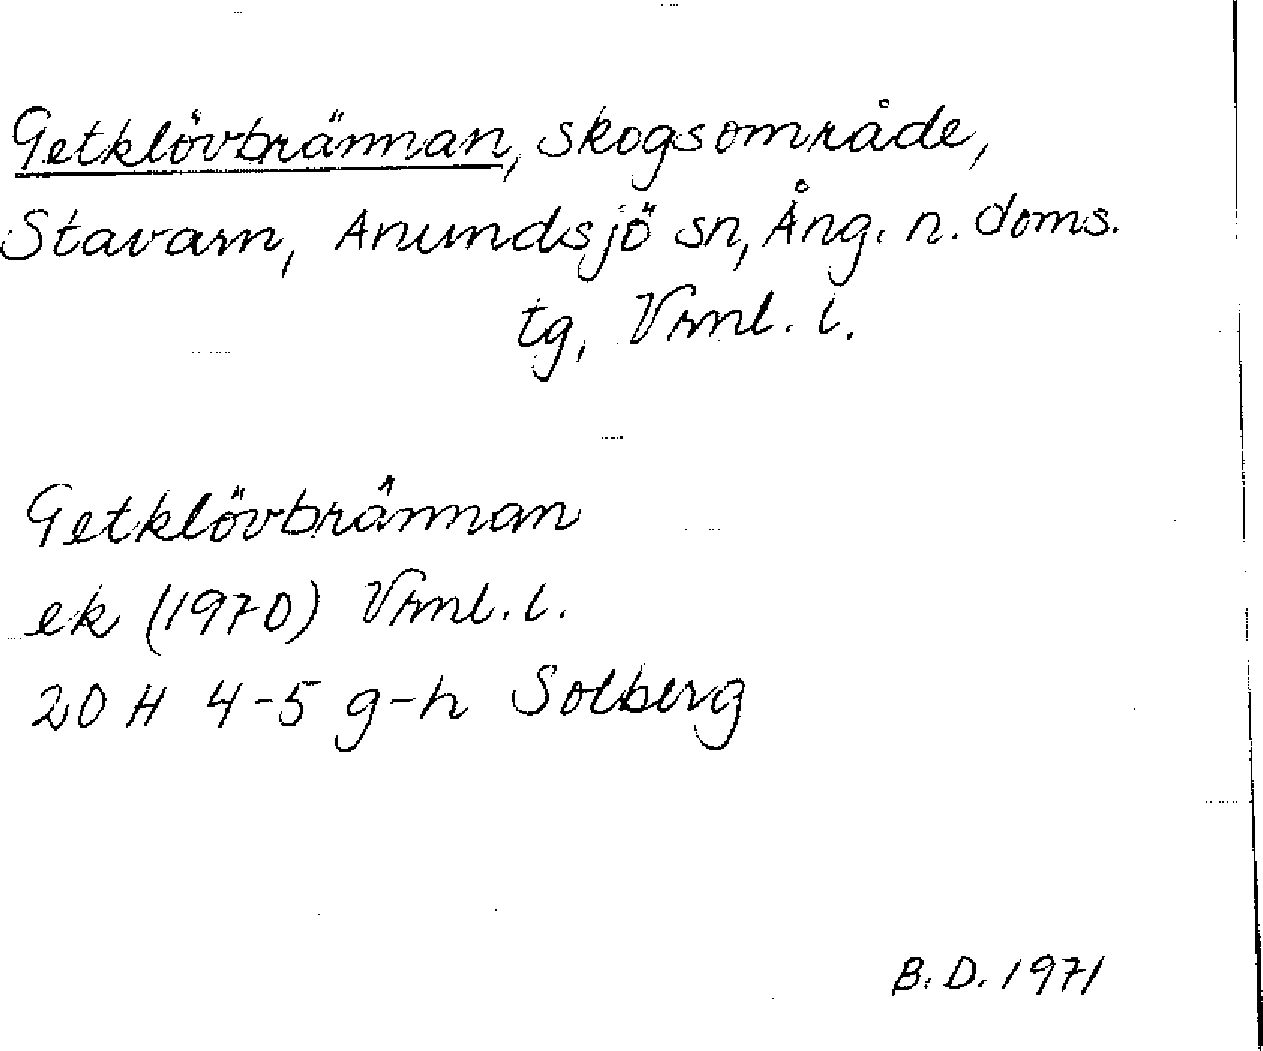 Getklövbrännan, skogsområde,
Stavarn, Anundsjö sn, Ång. n. doms.
tg, Vrml. l.
Getklövbrännan
ek (1970) Vrml. l.
20 H 4-5 g-h Solberg
B. D. 1971